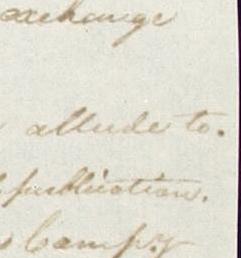 exchange
allude to.
publication.